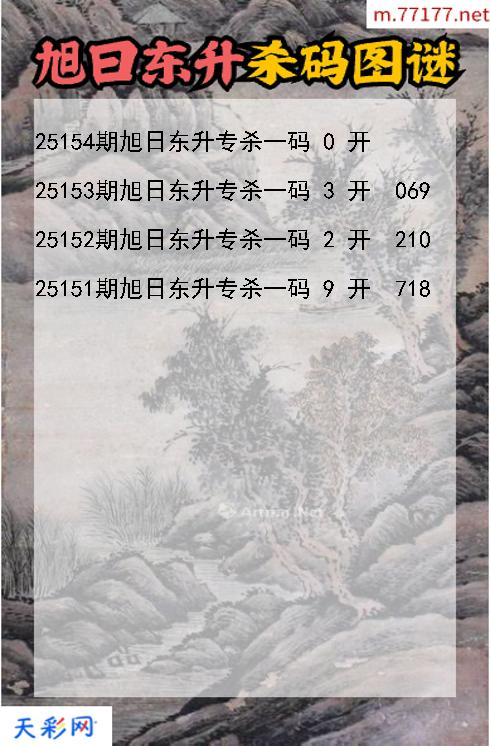 m.77177.net
旭日东升杀码图谜
25154期旭日东升专杀一码 0 开
25153期旭日东升专杀一码 3 开 069
25152期旭日东升专杀一码 2 开 210
25151期旭日东升专杀一码 9 开 718
天彩网